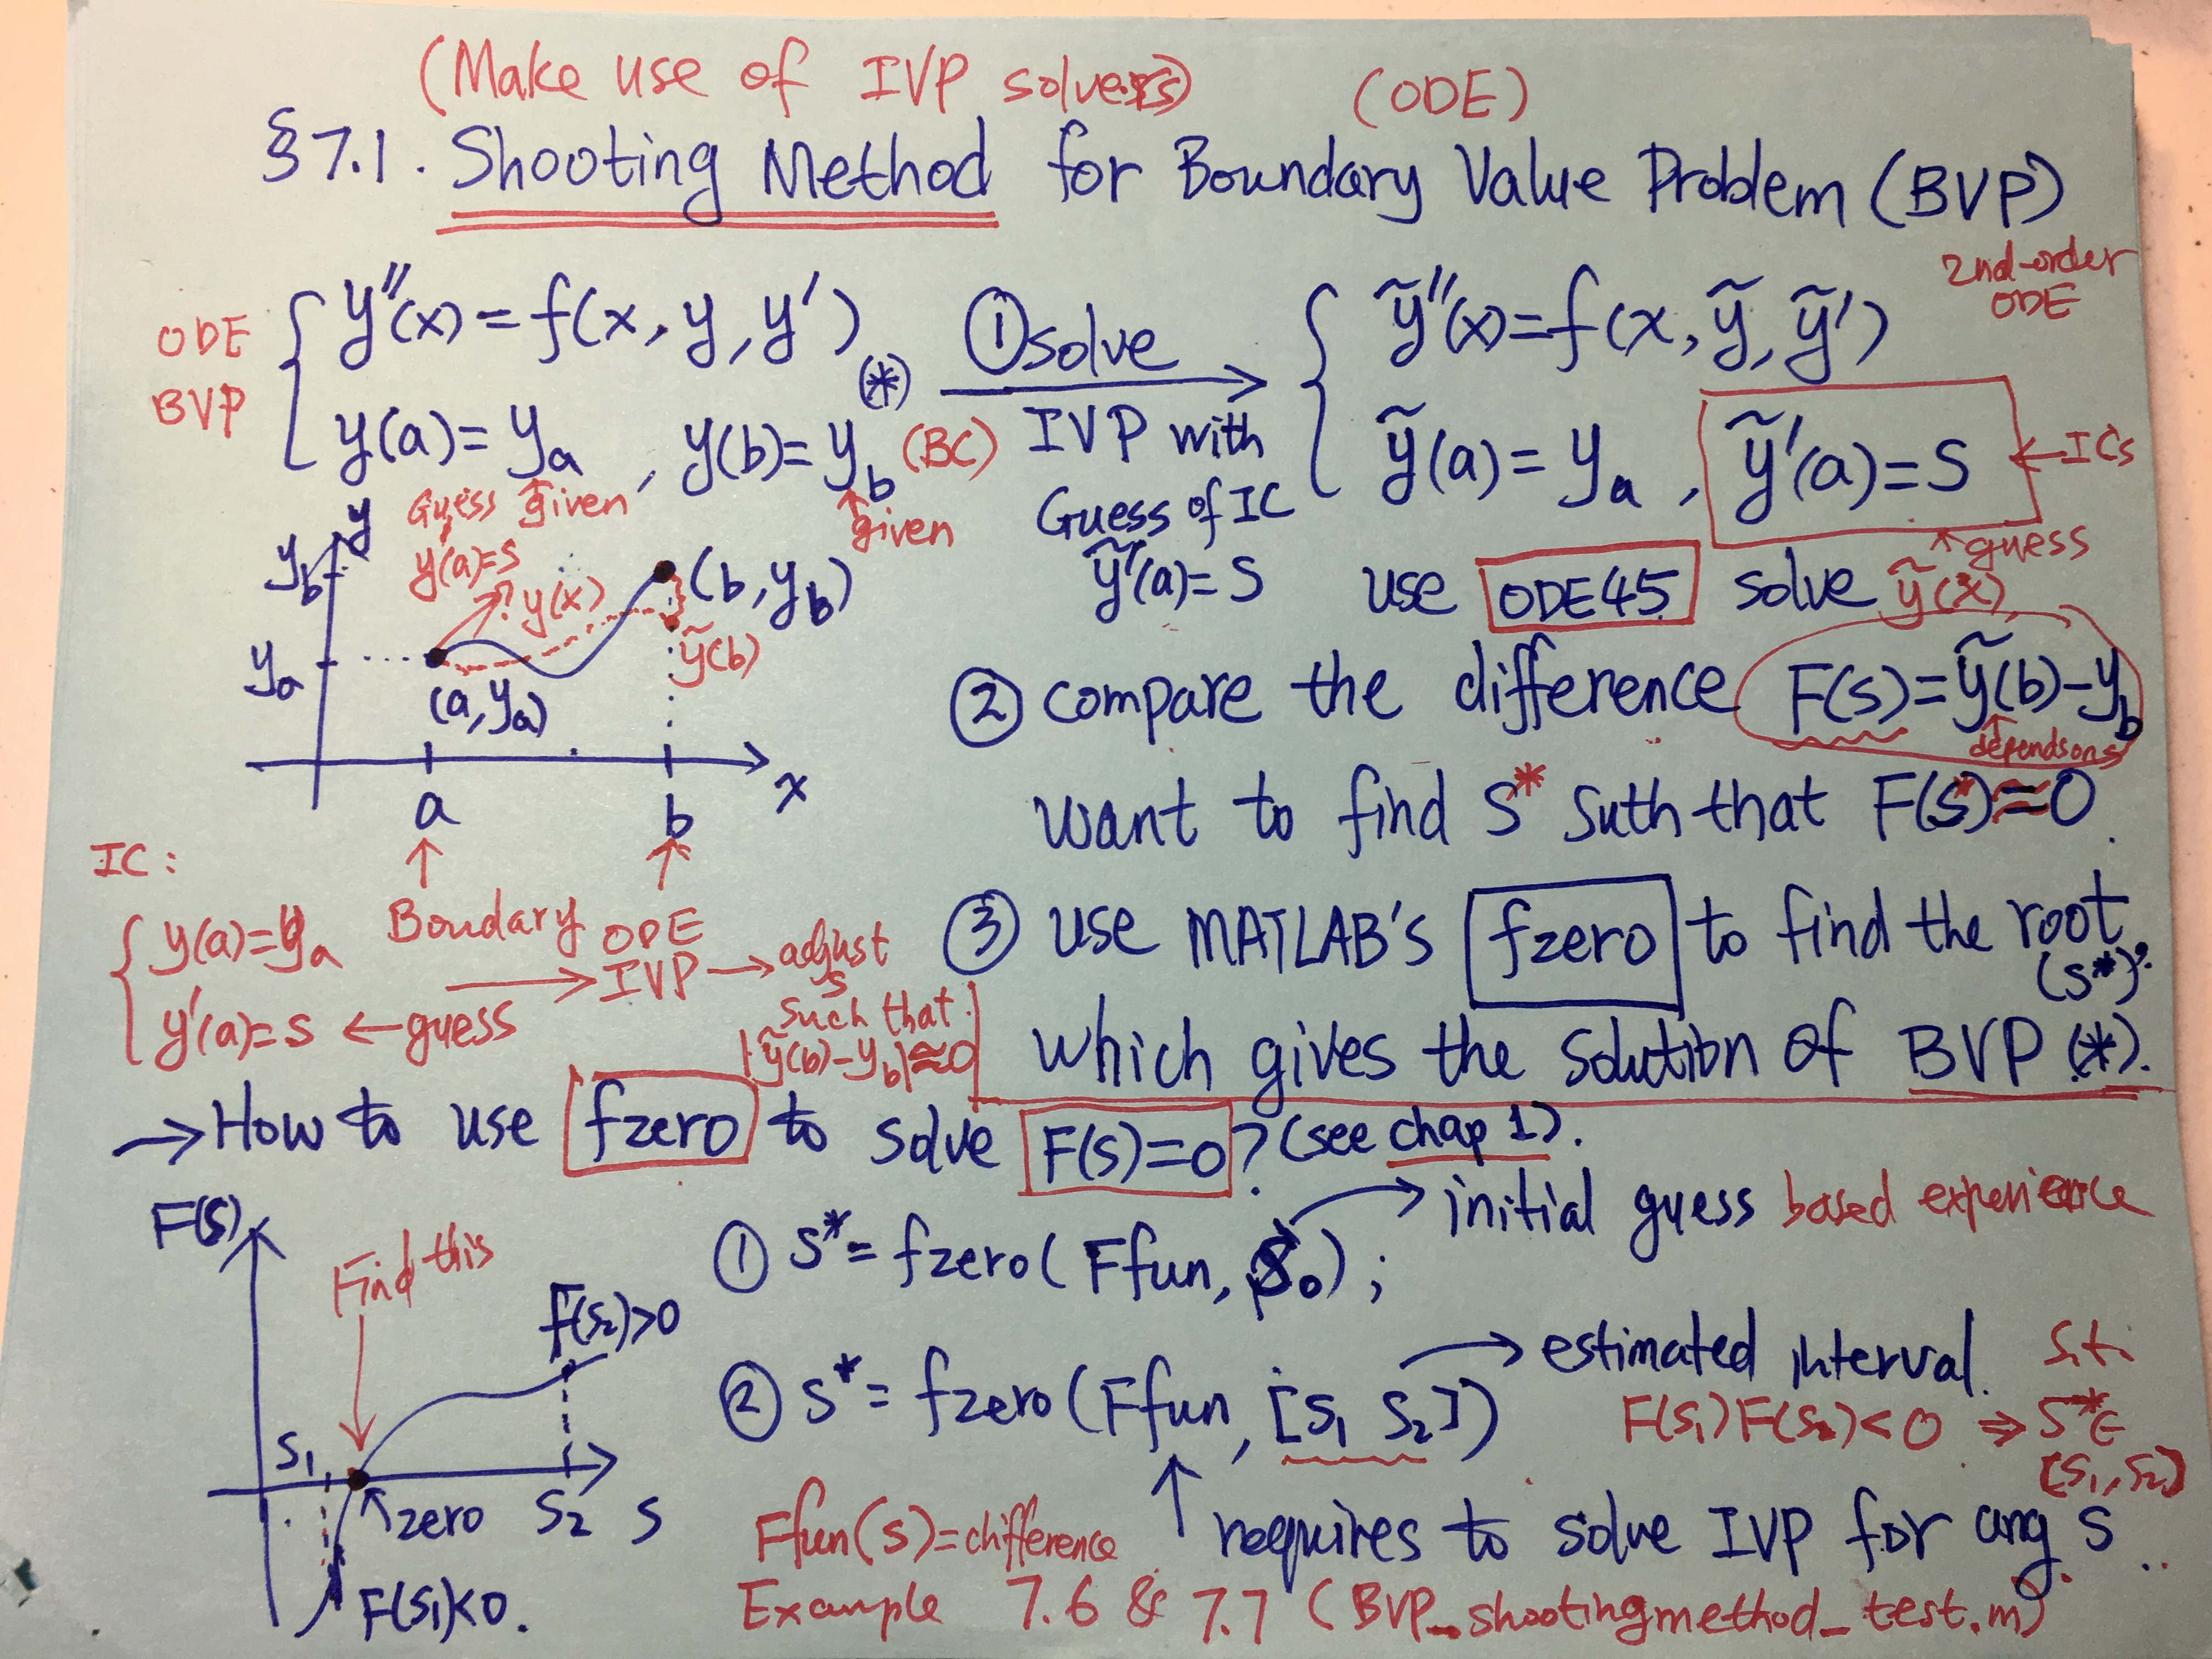 (Make use of IVP solvers) (ODE)
§7.1. Shooting Method for Boundary Value Problem (BVP)
ODE BVP
y''(x) = f(x, y, y')
(*)
y(a) = y_a , y(b) = y_b (BC)
given
given
① solve
IVP with
Guess of IC
ỹ'(a) = s
2nd-order
ODE
ỹ''(x) = f(x, ỹ, ỹ')
ỹ(a) = y_a , ỹ'(a) = s ← ICs
guess
use ODE45 solve ỹ(x)
y
y_b
Guess
y'(a)=s
? y(x)
(b, y_b)
ỹ(b)
y_a
(a, y_a)
a b x
Boudary
② compare the difference F(s) = ỹ(b) - y_b
depends on s
want to find s* suth that F(s*) ≈ 0.
IC:
y(a) = y_a
y'(a) = s ← guess
→ ODE IVP → adjust s
such that
|ỹ(b) - y_b| ≈ 0
③ use MATLAB's fzero to find the root
(s*).
which gives the solution of BVP (*).
→ How to use fzero to solve F(s)=0? (see chap 1).
F(s)
Find this
F(s_2)>0
s_1
zero s_2 s
F(s_1)<0.
① s* = fzero( Ffun, s_0) ; → initial guess based experience
② s* = fzero(Ffun, [s_1 s_2]) → estimated interval. s.t.
F(s_1)F(s_2)<0 ⇒ s* ∈
[s_1, s_2]
Ffun(s)=difference
↑ requires to solve IVP for any s..
Example 7.6 & 7.7 (BVP_shootingmethod_test.m)